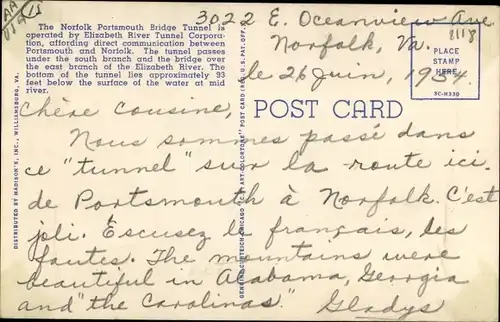 3022 E. Oceanview Ave.
Norfolk, Va.
le 26 juin, 1954.
The Norfolk Portsmouth Bridge Tunnel is
operated by Elizabeth River Tunnel Corpora-
tion, affording direct communication between
Portsmouth and Norfolk. The tunnel passes
under the south branch and the bridge over
the east branch of the Elizabeth River. The
bottom of the tunnel lies approximately 93
feet below the surface of the water at mid
river.
PLACE
STAMP
HERE
3C-H330
POST CARD
DISTRIBUTED BY MADISON'S, INC., WILLIAMSBURG, VA.
GENUINE CURTEICH-CHICAGO "C.T. ART-COLORTONE" POST CARD (REG. U.S. PAT. OFF.)
chère cousine,
Nous sommes passé dans
ce "tunnel" sur la route ici.
de Portsmouth à Norfolk. C'est
joli. Escusez le français, les
fautes. The mountains were
beautiful in Alabama, Georgia
and "the Carolinas." Gladys